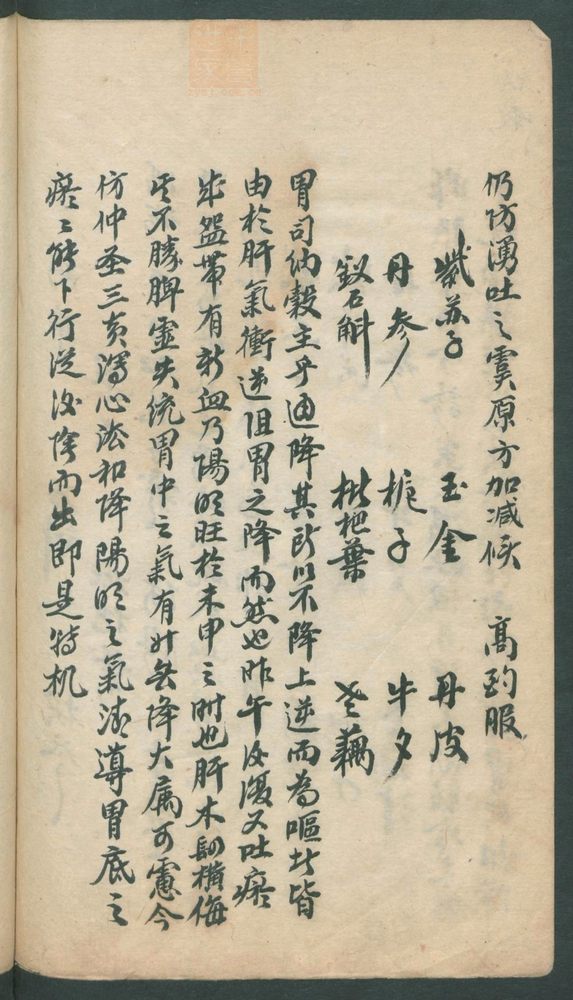 仍防湧吐之虞原方加減候 高酌服
紫苏子 玉金 丹皮
丹参 梔子 牛夕
釵石斛 枇杷葉 老藕
胃司纳穀主乎通降其所以不降上逆而為嘔吐皆
由於肝氣衝逆阻胃之降而然也昨午後復又吐瘀
成盌帶有新血乃陽明旺於未申之時也肝木剛横侮
土不勝脾虚失统胃中之氣有升無降大属可慮今
仿仲圣三黄瀉心法和降陽明之氣清導胃底之
瘀瘀能下行從後陰而出即是轉机